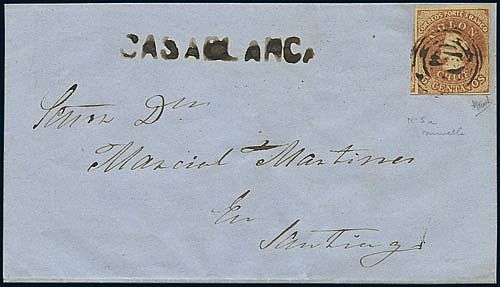 CORREOS PORTE FRANCO
COLON
CASABLANCA
CHILE
5 CENTAVOS
Señor Dn
Nº 5a
Marcial Martinez
En
Santiago